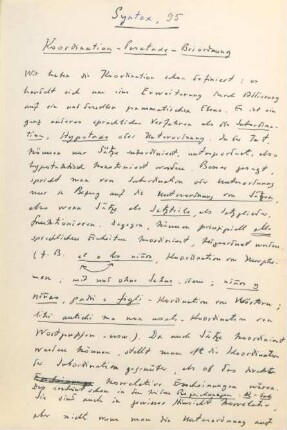 Syntax, 95
Koordination - Parataxe - Beiordnung
Wir haben die Koordination schon definiert: es
handelt sich um eine Erweiterung durch Addierung
auf ein und derselben grammatischen Ebene. Es ist ein
ganz anderes sprachliches Verfahren als die Subordina-
tion, Hypotaxe oder Unterordnung. In der Tat
können nur Sätze subordiniert, untergeordnet, also
hypotaktisch konstruiert werden. Besser gesagt,
spricht man von Subordination oder Unterordnung
nur in Bezug auf die Unterordnung von Sätzen,
also wenn Sätze als Satzteile als Satzglieder
funktionieren. Dagegen können prinzipiell alle
sprachlichen Einheiten koordiniert, beigeordnet werden.
(z.B. el o los niños, Koordination von Morphe-
men; mit und ohne Sahne, idem; niños y
niñas, padri e figli - Koordination von Wörtern;
libri antichi ma non - Koordination von
Wortgruppen usw.). Da auch Sätze koordiniert
werden können, stellt man oft die Koordination
der Subordination gegenüber, als ob dies
korrelative Erscheinungen wären.
Sie sind auch in gewisser Hinsicht korrelativ,
aber nicht wenn man die Unterordnung auf